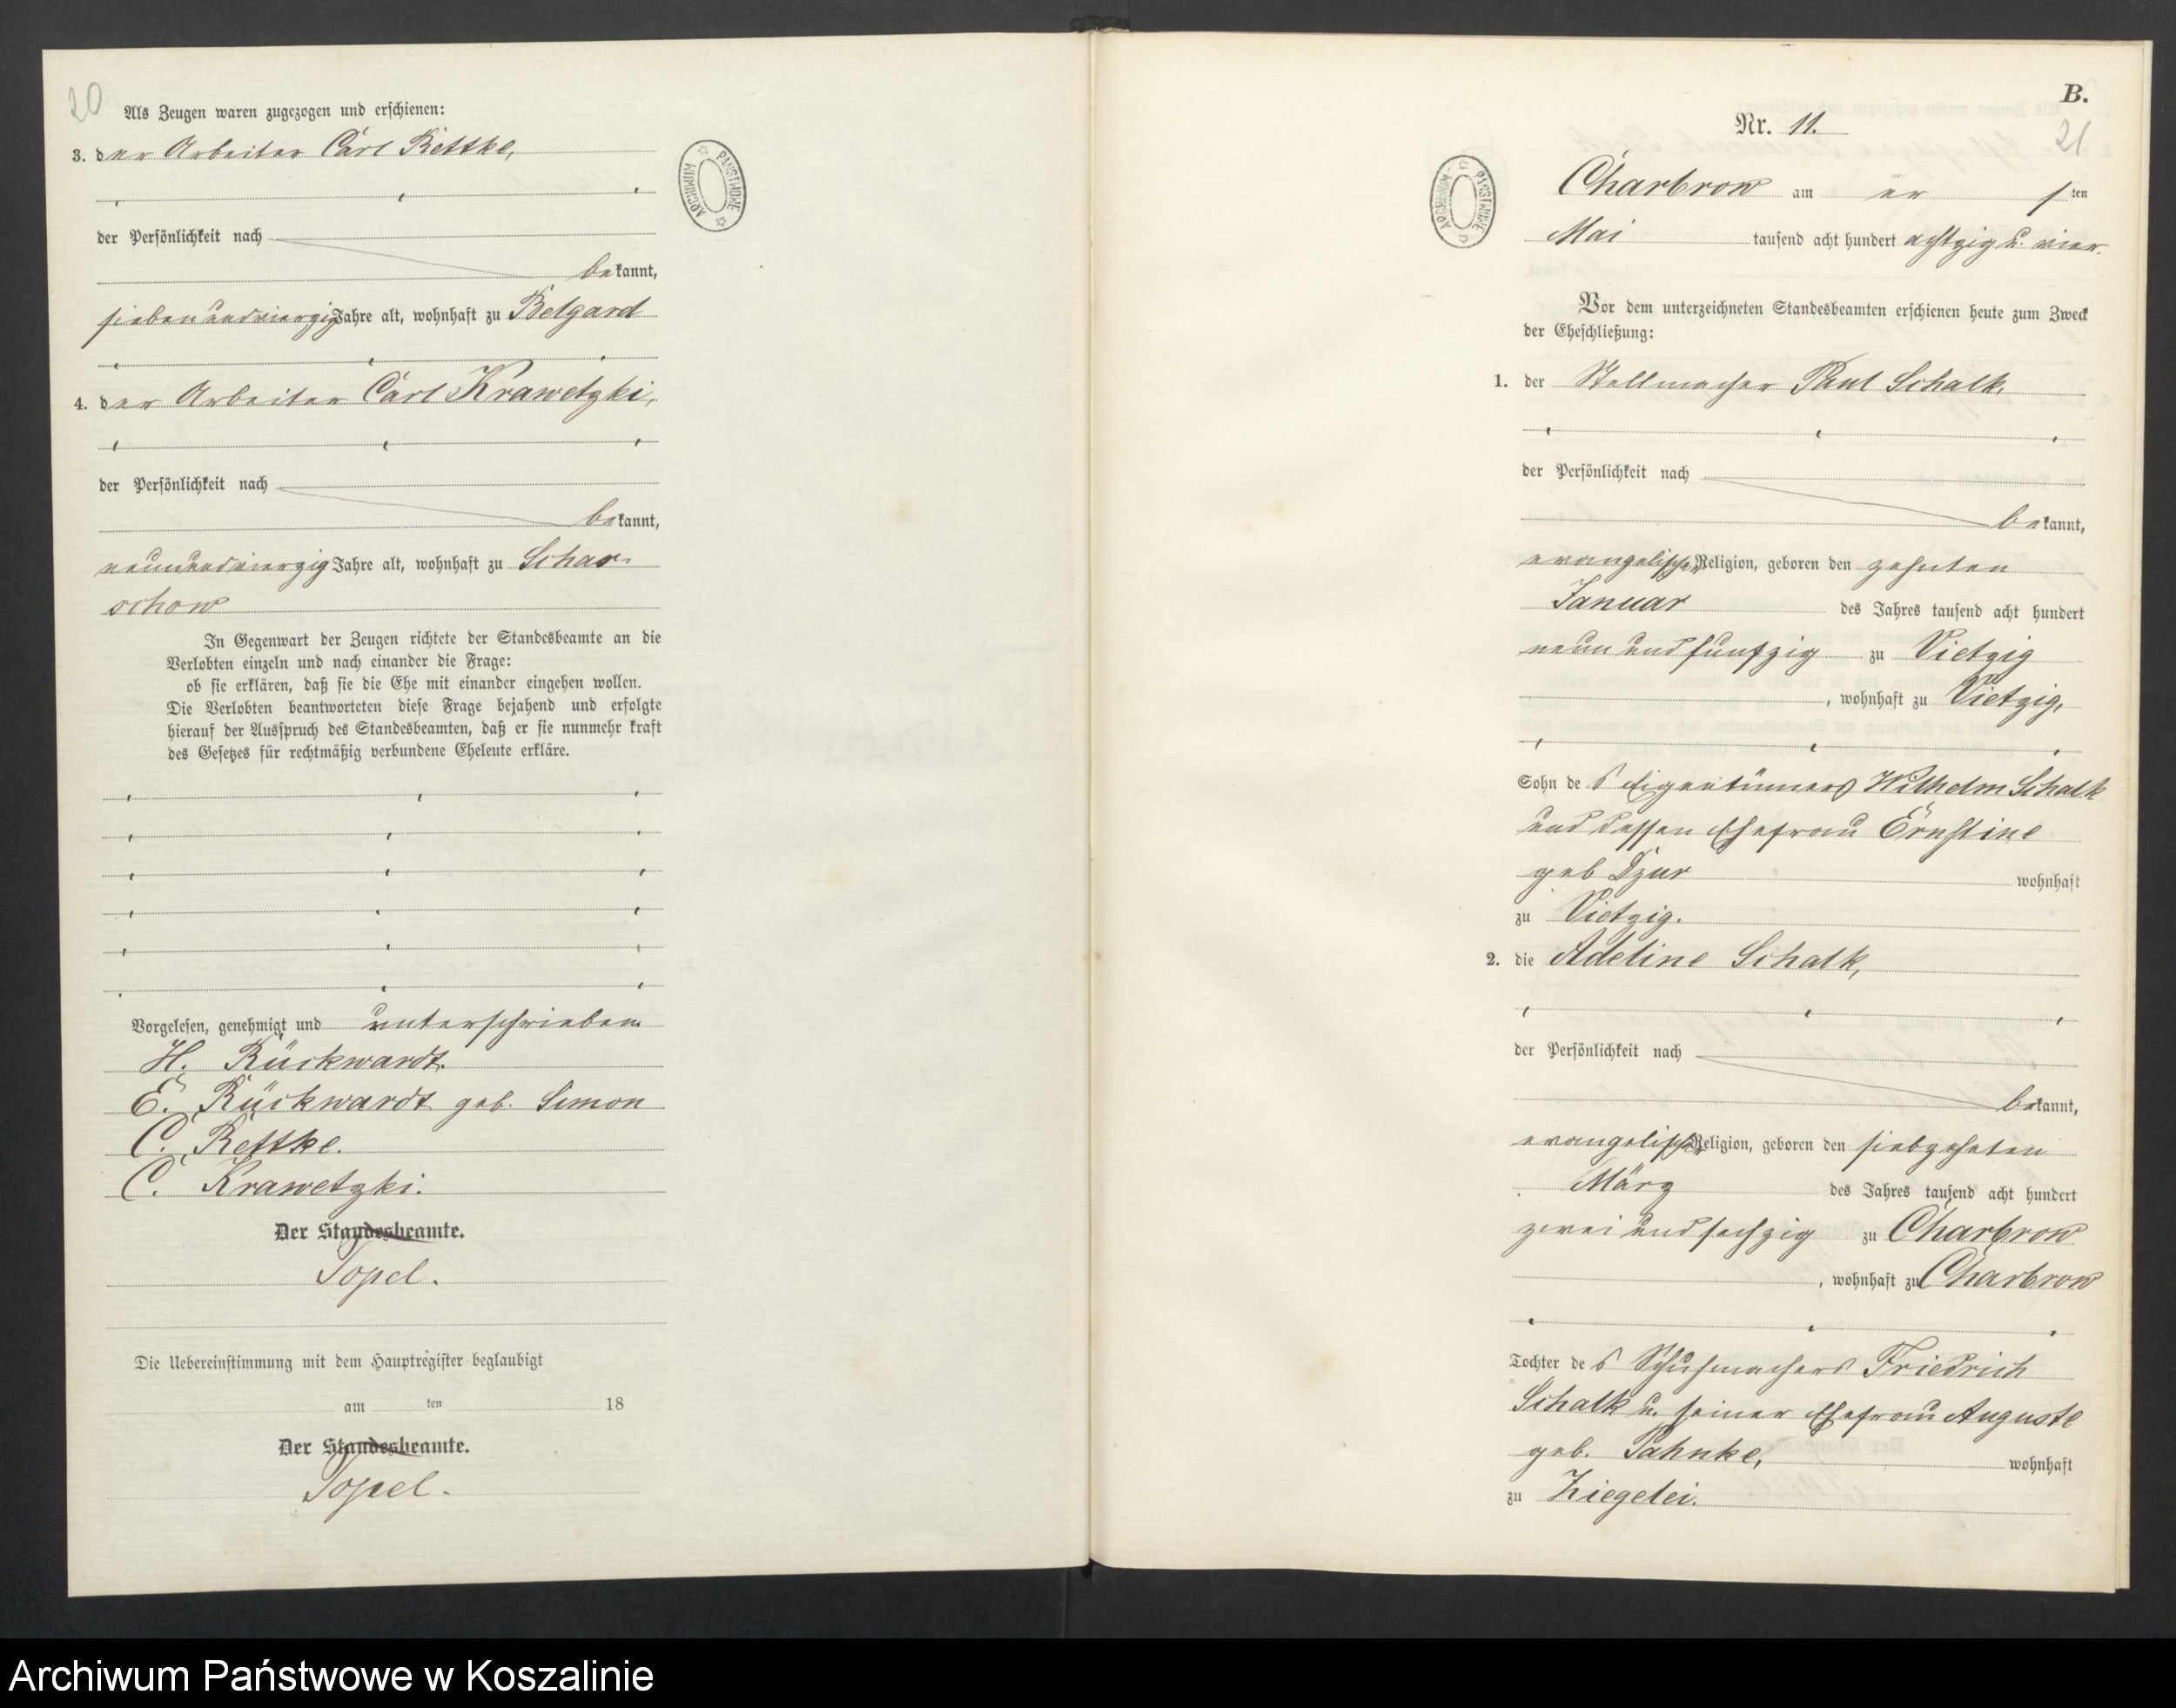 20
Als Zeugen waren zugezogen und erschienen:
3. der Arbeiter Carl Rettke,
der Persönlichkeit nach
bekannt,
siebenundvierzig Jahre alt, wohnhaft zu Belgard
4. der Arbeiter Carl Krawetzki,
der Persönlichkeit nach
bekannt,
neunundvierzig Jahre alt, wohnhaft zu Schar-
schow
In Gegenwart der Zeugen richtete der Standesbeamte an die
Verlobten einzeln und nach einander die Frage:
ob sie erklären, daß sie die Ehe mit einander eingehen wollen.
Die Verlobten beantworteten diese Frage bejahend und erfolgte
hierauf der Ausspruch des Standesbeamten, daß er sie nunmehr kraft
des Gesetzes für rechtmäßig verbundene Eheleute erkläre.
Vorgelesen, genehmigt und unterschrieben
H. Rückwardt.
E. Rückwardt geb. Simon
C. Rettke.
C. Krawetzki.
Der Standesbeamte.
Topel.
Die Uebereinstimmung mit dem Hauptregister beglaubigt
am ten 18
Der Standesbeamte.
Topel.
ARCHIWUM PAŃSTWOWE
B.
Nr. 11.
21
ARCHIWUM PAŃSTWOWE
Charbrow am ten
Mai tausend acht hundert achtzig u. vier.
Vor dem unterzeichneten Standesbeamten erschienen heute zum Zweck
der Eheschließung:
1. der Stellmacher Paul Schalk,
der Persönlichkeit nach
bekannt,
evangelischer Religion, geboren den zehnten
Januar des Jahres tausend acht hundert
neun und funfzig zu Vietzig
, wohnhaft zu Vietzig,
Sohn des Eigentümers Wilhelm Schalk
und dessen Ehefrau Ernstine
geb Dzur wohnhaft
zu Vietzig.
2. die Adeline Schalk,
der Persönlichkeit nach
bekannt,
evangelischer Religion, geboren den siebzehnten
März des Jahres tausend acht hundert
zwei und sechzig zu Charbrow
, wohnhaft zu Charbrow
Tochter des Schuhmachers Friedrich
Schalk u. seiner Ehefrau Auguste
geb. Pahnke, wohnhaft
zu Ziegelei.
Archiwum Państwowe w Koszalinie